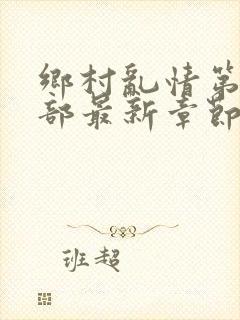 鄉村亂情第
部最新章節
班超